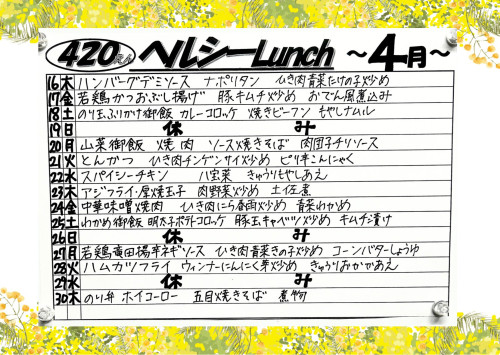 420えん ヘルシーLunch ～4月～
16木 ハンバーグデミソース ナポリタン ひき肉青菜たけの子炒め
17金 若鶏かつおぶし揚げ 豚キムチ炒め おでん風煮込み
18土 のり玉ふりかけ御飯 カレーコロッケ 焼きビーフン もやしナムル
19日 休み
20月 山菜御飯 焼肉 ソース焼きそば 肉団子チリソース
21火 とんかつ ひき肉チンゲンサイ炒め ピリ辛こんにゃく
22水 スパイシーチキン 八宝菜 きゅうりもやしあえ
23木 アジフライ・厚焼玉子 肉野菜炒め 土佐煮
24金 中華味噌焼肉 ひき肉にら春雨炒め 青菜わかめ
25土 わかめ御飯 明太子ポテトコロッケ 豚玉キャベツ炒め キムチ漬け
26日 休み
27月 若鶏竜田揚辛ネギソース ひき肉青菜きの子炒め コーンバターしょうゆ
28火 ハムカツフライ ウィンナーにんにく芽炒め きゅうりおかかあえ
29水 休み
30木 のり弁 ホイコーロー 五目焼きそば 煮物